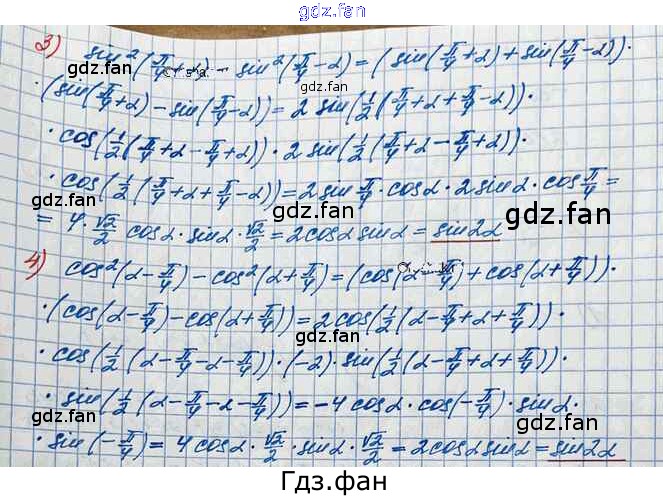 gdz.fan
3) sin²(π/4 + α) - sin²(π/4 - α) = (sin(π/4 + α) + sin(π/4 - α)) ·
· (sin(π/4 + α) - sin(π/4 - α)) = 2 sin(1/2(π/4 + α + π/4 - α)) ·
· cos(1/2(π/4 + α - π/4 + α)) · 2 sin(1/2(π/4 + α - π/4 + α)) ·
· cos(1/2(π/4 + α + π/4 - α)) = 2 sin π/4 · cos α · 2 sin α · cos π/4 =
= 4 · √2/2 cos α · sin α · √2/2 = 2 cos α sin α = sin 2α
4) cos²(α - π/4) - cos²(α + π/4) = (cos(α - π/4) + cos(α + π/4)) ·
· (cos(α - π/4) - cos(α + π/4)) = 2 cos(1/2(α - π/4 + α + π/4)) ·
· cos(1/2(α - π/4 - α - π/4)) · (-2) · sin(1/2(α - π/4 + α + π/4)) ·
· sin(1/2(α - π/4 - α - π/4)) = -4 cos α · cos(-π/4) · sin α ·
· sin(-π/4) = 4 cos α · √2/2 · sin α · √2/2 = 2 cos α sin α = sin 2α
gdz.fan
gdz.fan
gdz.fan
gdz.fan
gdz.fan
gdz.fan
gdz.fan
gdz.fan
gdz.fan
Гдз.фан